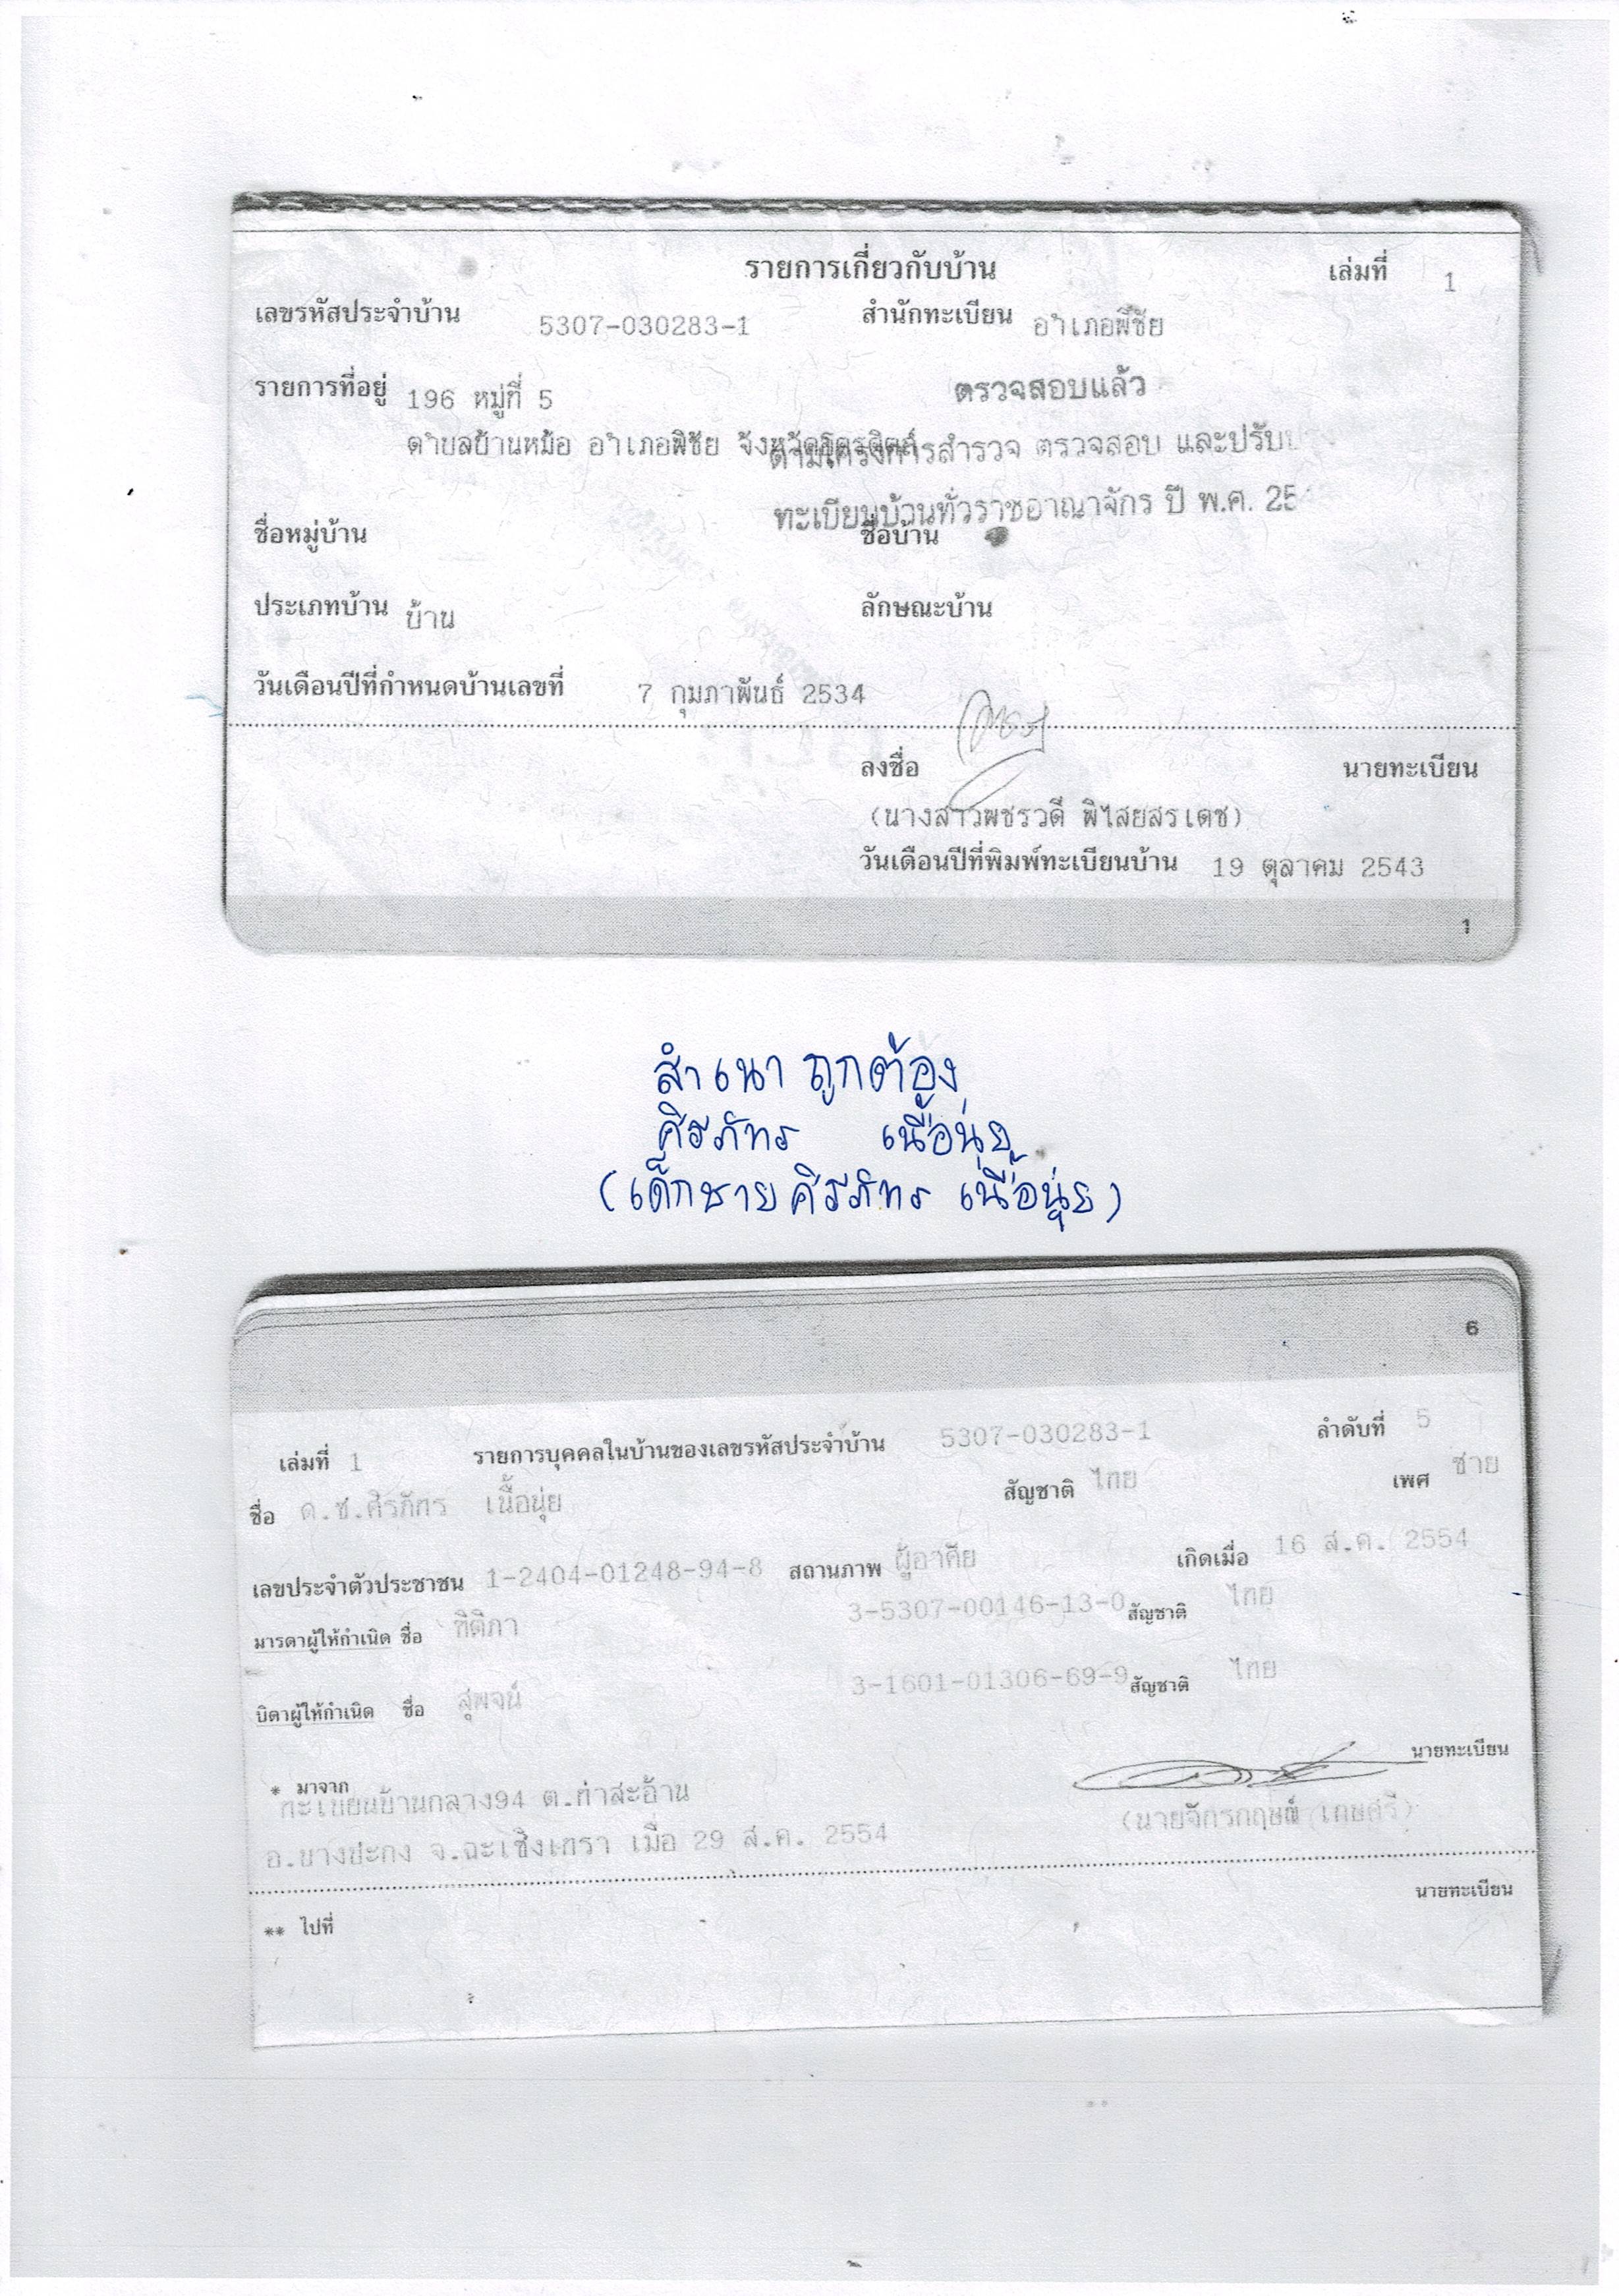 รายการเกี่ยวกับบ้าน เล่มที่ 1
เลขรหัสประจำบ้าน 5307-030283-1 สำนักทะเบียน อำเภอพิชัย
รายการที่อยู่ 196 หมู่ที่ 5 ตรวจสอบแล้ว
ตำบลบ้านหม้อ อำเภอพิชัย จังหวัดอุตรดิตถ์ ตามโครงการสำรวจ ตรวจสอบ และปรับ
ทะเบียนบ้านทั่วราชอาณาจักร ปี พ.ศ. 25
ชื่อหมู่บ้าน ชื่อบ้าน
ประเภทบ้าน บ้าน ลักษณะบ้าน
วันเดือนปีที่กำหนดบ้านเลขที่ 7 กุมภาพันธ์ 2534
ลงชื่อ นายทะเบียน
(นางสาวพชรวดี พิไสยสรเดช)
วันเดือนปีที่พิมพ์ทะเบียนบ้าน 19 ตุลาคม 2543
1
สำเนาถูกต้อง
ศิรภัทร เนื้อนุ่ย
(เด็กชายศิรภัทร เนื้อนุ่ย)
6
เล่มที่ 1 รายการบุคคลในบ้านของเลขรหัสประจำบ้าน 5307-030283-1 ลำดับที่ 5
ชื่อ ด.ช.ศิรภัทร เนื้อนุ่ย สัญชาติ ไทย เพศ ชาย
เลขประจำตัวประชาชน 1-2404-01248-94-8 สถานภาพ ผู้อาศัย เกิดเมื่อ 16 ส.ค. 2554
มารดาผู้ให้กำเนิด ชื่อ ทิติภา 3-5307-00146-13-0 สัญชาติ ไทย
บิดาผู้ให้กำเนิด ชื่อ สุพจน์ 3-1601-01306-69-9 สัญชาติ ไทย
* มาจาก นายทะเบียน
ทะเบียนบ้านกลาง94 ต.ท่าสะอ้าน (นายจักรกฤษณ์ เกษศรี)
อ.บางปะกง จ.ฉะเชิงเทรา เมื่อ 29 ส.ค. 2554
นายทะเบียน
** ไปที่